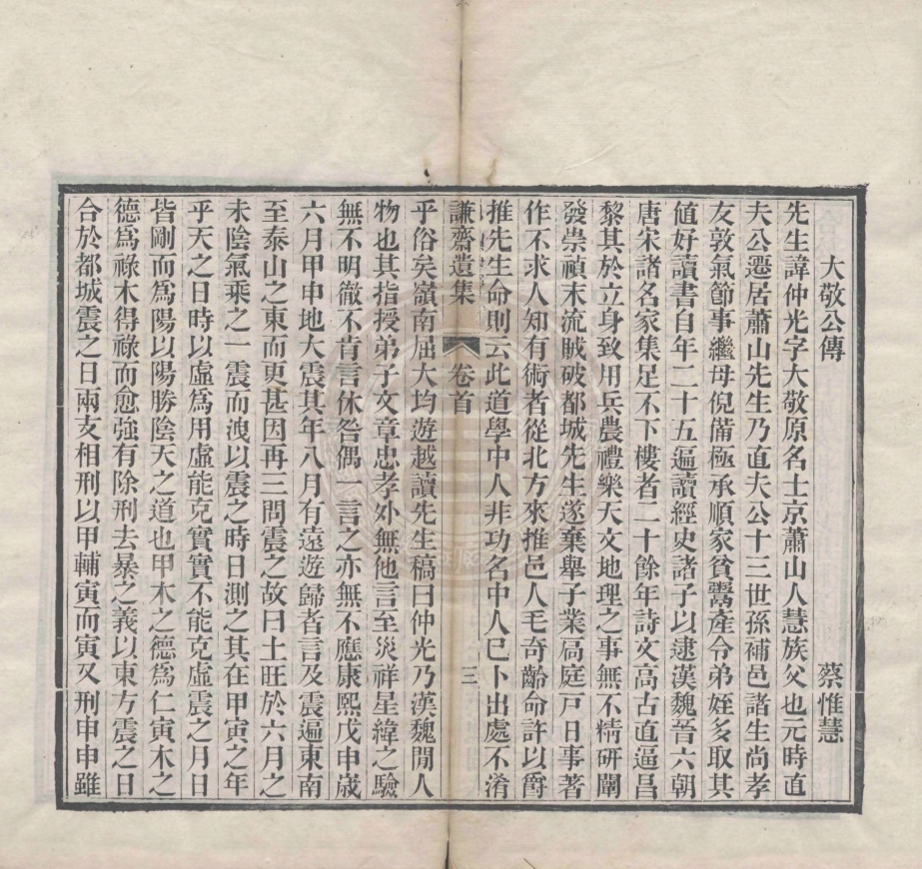 大敬公傳
蔡惟慧
先生諱仲光字大敬原名士京蕭山人慧族父也元時直
夫公遷居蕭山先生乃直夫公十三世孫補邑諸生尚孝
友敦氣節事繼母倪備極承順家貧鬻產令弟姪多取其
値好讀書自年二十五遍讀經史諸子以逮漢魏晉六朝
唐宋諸名家集足不下樓者二十餘年詩文高古直逼昌
黎其於立身致用兵農禮樂天文地理之事無不精研闡
發崇禎末流賊破都城先生遂棄舉子業扃庭戸日事著
作不求人知有術者從北方來推邑人毛奇齡命許以爵
推先生命則云此道學中人非功名中人巳卜出處不淆
謙齋遺集
卷首
三
乎俗矣嶺南屈大均遊越讀先生稿曰仲光乃漢魏閒人
物也其指授弟子文章忠孝外無他言至災祥星緯之驗
無不明徹不肯言休咎偶一言之亦無不應康熙戊申歲
六月甲申地大震其年八月有遠遊歸者言及震遍東南
至泰山之東而更甚因再三問震之故曰土旺於六月之
未陰氣乘之一震而洩以震之時日測之其在甲寅之年
乎天之日時以虛爲用虛能克實實不能克虛震之月日
皆剛而爲陽以陽勝陰天之道也甲木之德爲仁寅木之
德爲祿木得祿而愈強有除刑去暴之義以東方震之日
合於都城震之日兩支相刑以甲輔寅而寅又刑申申雖